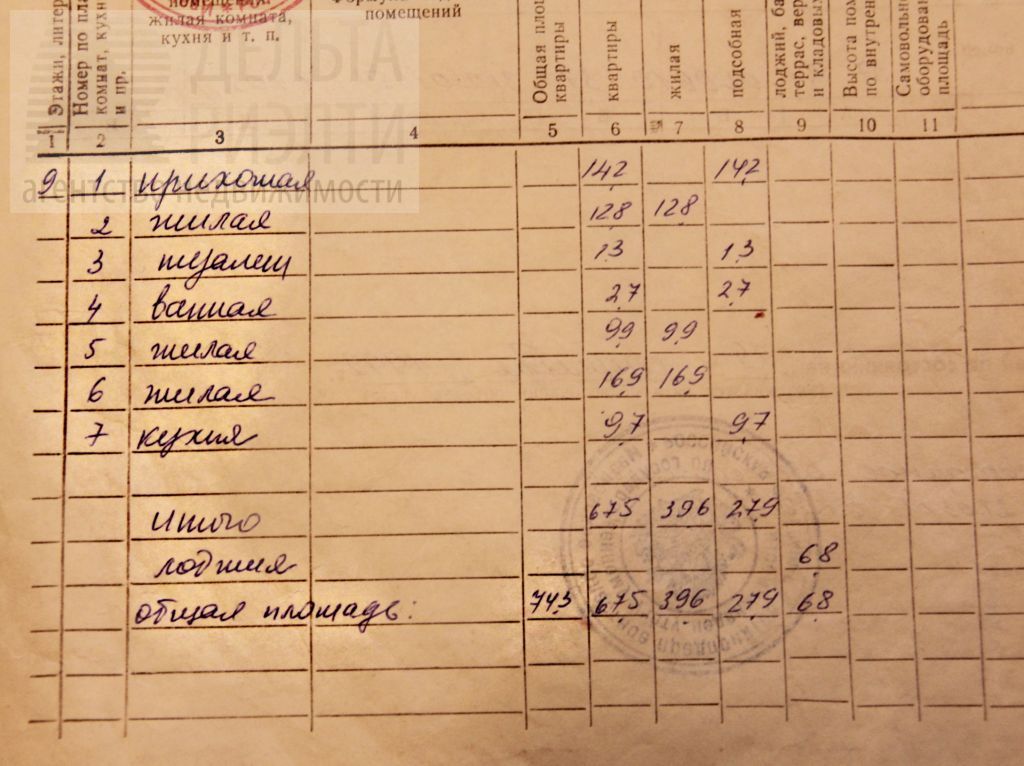 помещений:
жилая комната,
кухня и т. п.
помещений
Этажи, литер
Номер по пла
комнат, кухн
и пр.
Общая площ
квартиры
квартиры
жилая
подсобная
лоджий, ба
террас, вер
и кладовых
Высота пом
по внутрен
Самовольно
оборудован
площадь
ДЕЛЬТА
РИЭЛТИ
агентство недвижимости
1 2 3 4 5 6 7 8 9 10 11
9 1 прихожая 14,2 14,2
2 жилая 12,8 12,8
3 туалет 1,3 1,3
4 ванная 2,7 2,7
5 жилая 9,9 9,9
6 жилая 16,9 16,9
7 кухня 9,7 9,7
Итого 67,5 39,6 27,9
лоджия 6,8
общая площадь: 74,3 67,5 39,6 27,9 6,8